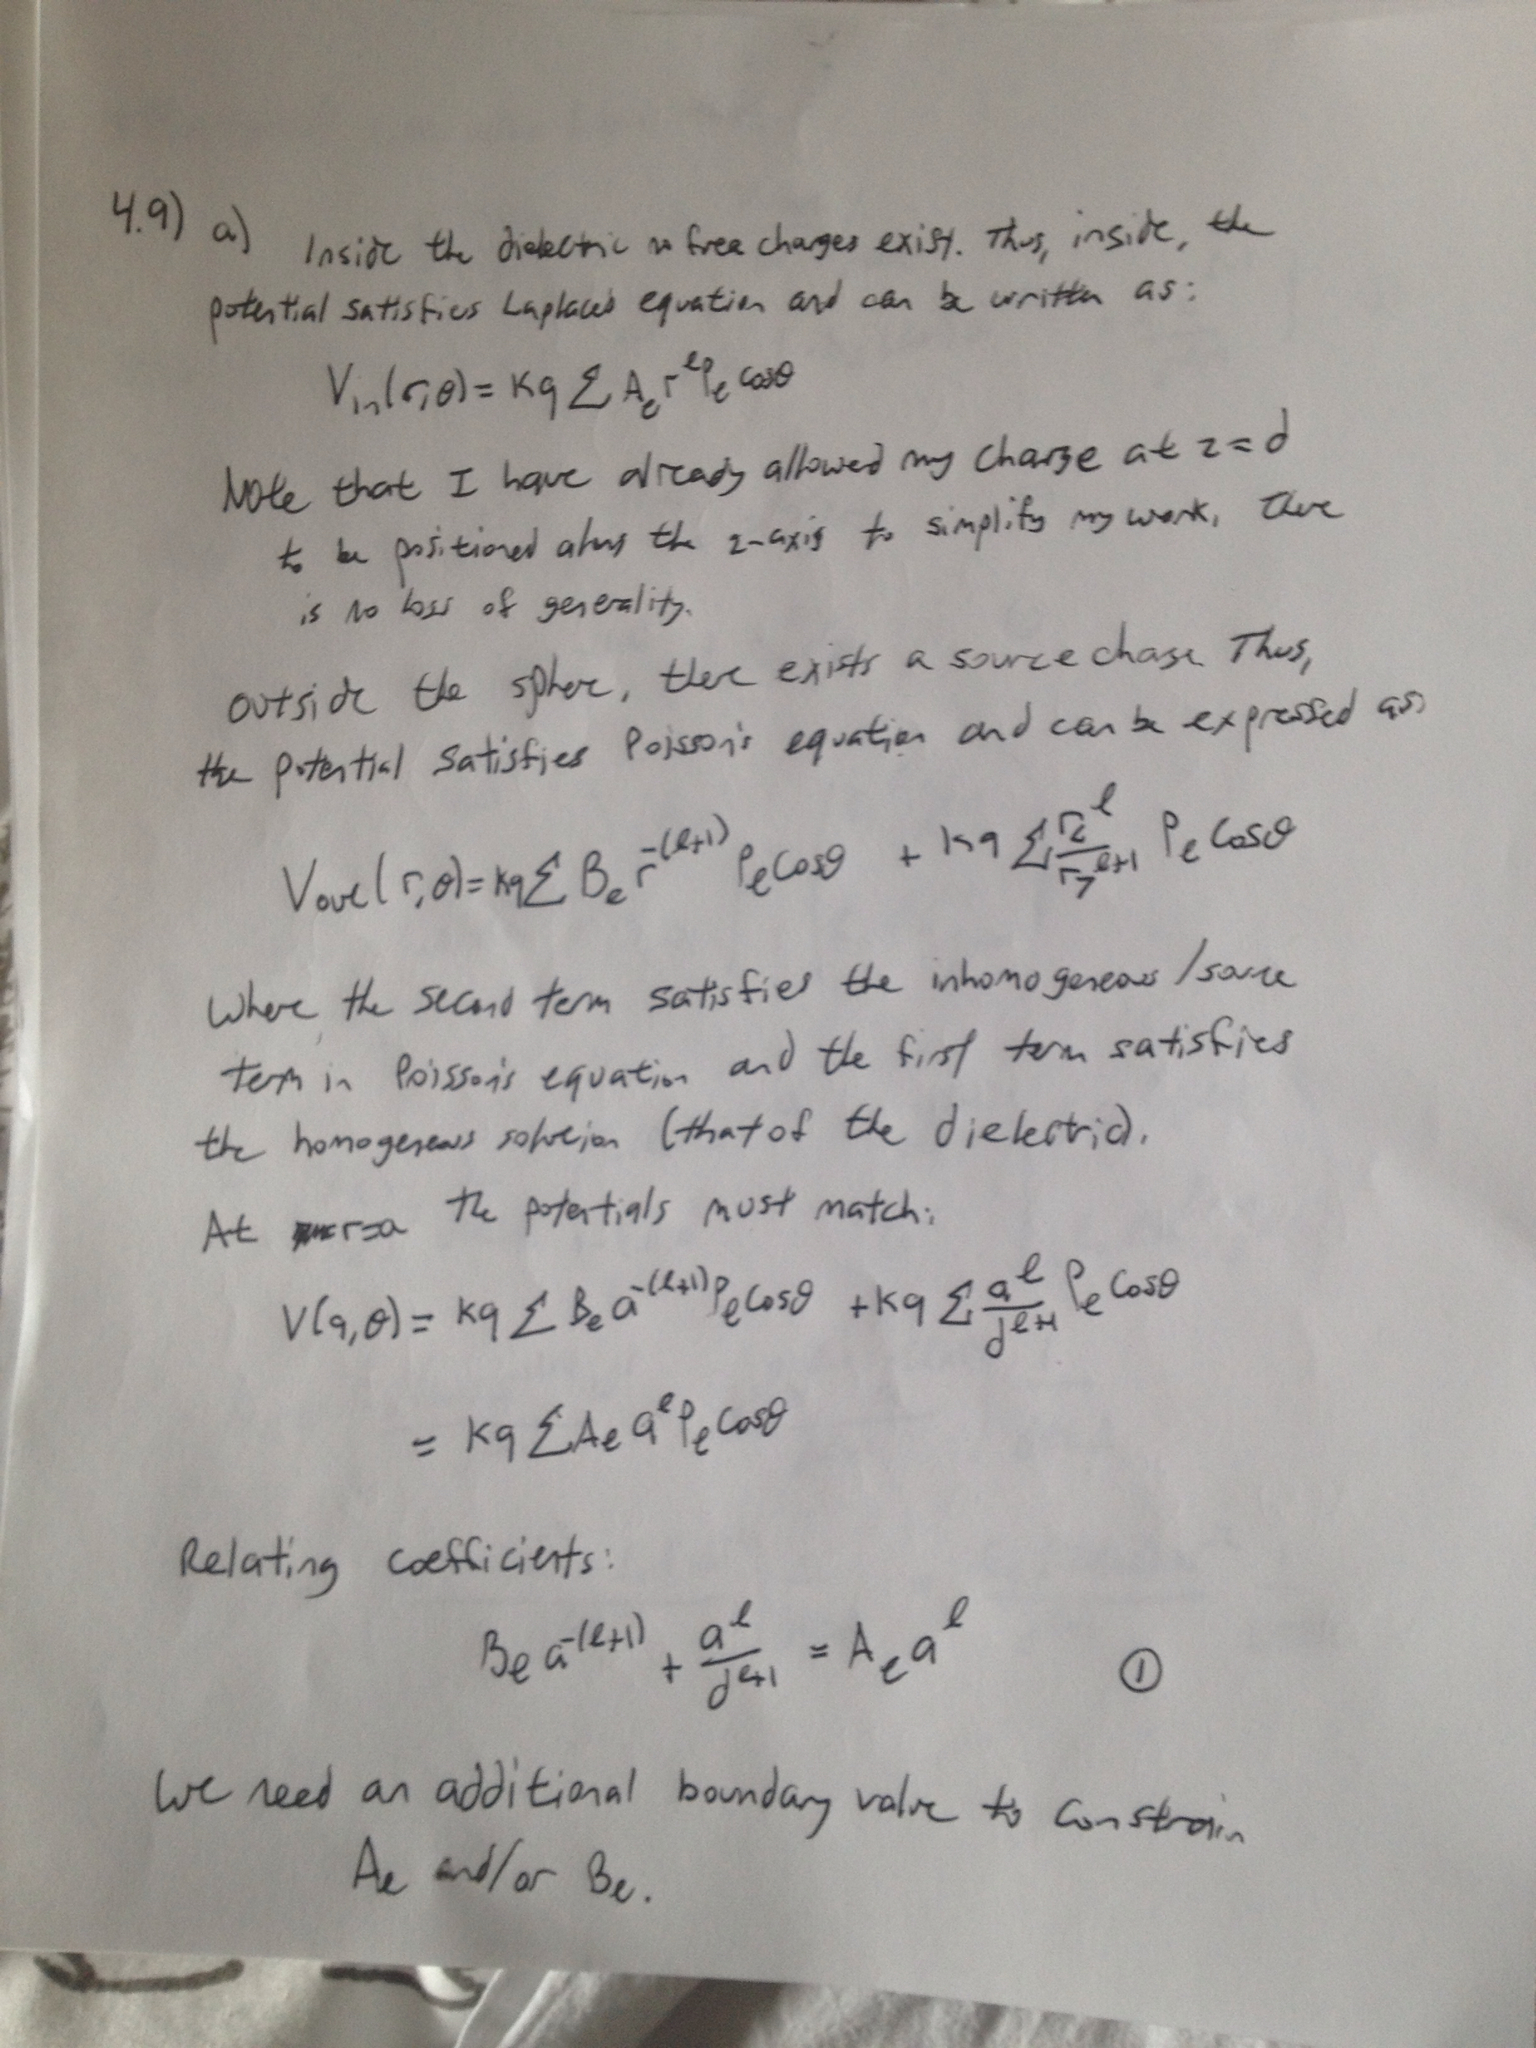 4.9) a) Inside the dielectric no free charges exist. Thus, inside, the
potential satisfies Laplace's equation and can be written as:
V_in(r,θ) = kq Σ A_l r^l P_l cosθ
Note that I have already allowed my charge at z=d
to be positioned along the z-axis to simplify my work. There
is no loss of generality.
outside the sphere, there exists a source charge Thus,
the potential satisfies Poisson's equation and can be expressed as:
V_out(r,θ) = kq Σ B_l r^-(l+1) P_l cosθ + kq Σ r_<^l / r_>^l+1 P_l cosθ
Where the second term satisfies the inhomogeneous/source
term in Poisson's equation and the first term satisfies
the homogeneous solution (that of the dielectric).
At r=a the potentials must match:
V(a,θ) = kq Σ B_l a^-(l+1) P_l cosθ + kq Σ a^l / d^l+1 P_l cosθ
= kq Σ A_l a^l P_l cosθ
Relating coefficients:
B_l a^-(l+1) + a^l / d^l+1 = A_l a^l ①
We need an additional boundary value to constrain
A_l and/or B_l.